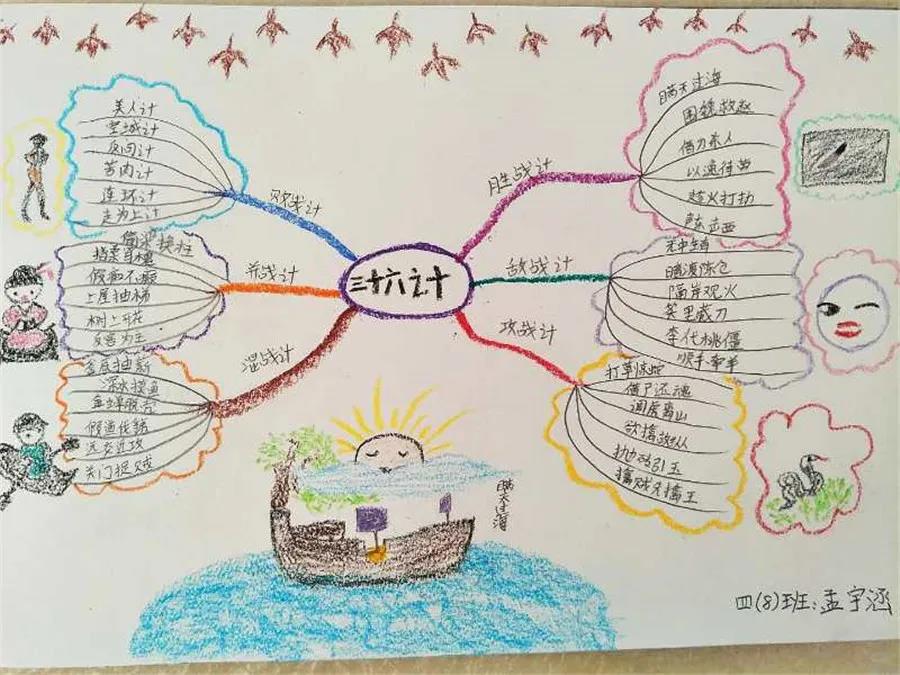 三十六计
胜战计
瞒天过海
围魏救赵
借刀杀人
以逸待劳
趁火打劫
声东击西
敌战计
无中生有
暗渡陈仓
隔岸观火
笑里藏刀
李代桃僵
顺手牵羊
攻战计
打草惊蛇
借尸还魂
调虎离山
欲擒故纵
抛砖引玉
擒贼先擒王
混战计
釜底抽薪
浑水摸鱼
金蝉脱壳
假道伐虢
远交近攻
关门捉贼
并战计
偷梁换柱
指桑骂槐
假痴不癫
上屋抽梯
树上开花
反客为主
败战计
美人计
空城计
反间计
苦肉计
连环计
走为上计
瞒天过海
四(8)班:孟宇涵